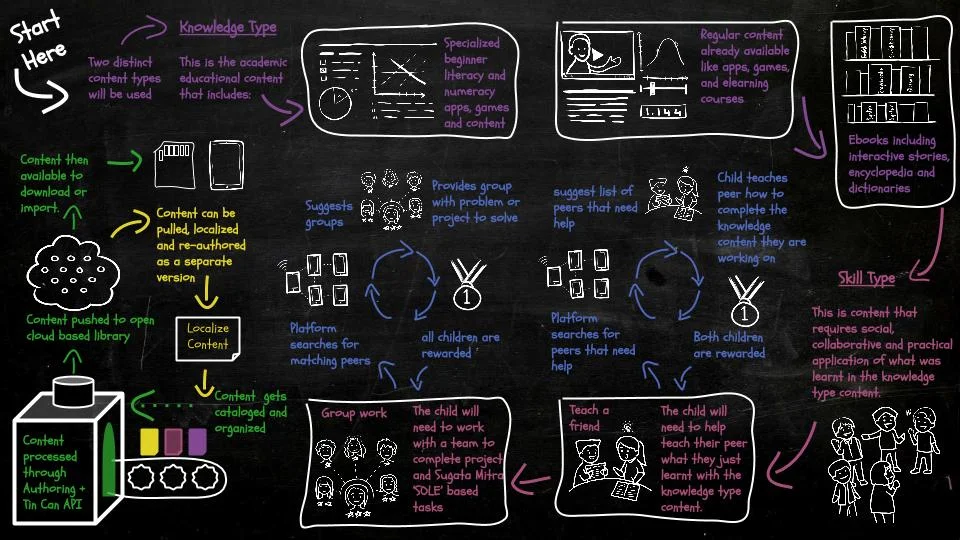 Start
Here
Knowledge Type
Two distinct
content types
will be used
This is the academic
educational content
that includes:
Specialized
beginner
literacy and
numeracy
apps, games
and content
Regular content
already available
like apps, games,
and elearning
courses
1.144
Ebooks including
interactive stories,
encyclopedia and
dictionaries
Skill Type
This is content that
requires social,
collaborative and practical
application of what was
learnt in the knowledge
type content.
Teach a
friend
The child will
need to help
teach their peer
what they just
learnt with the
knowledge type
content.
suggest list of
peers that need
help
Child teaches
peer how to
complete the
knowledge
content they are
working on
1
Both children
are rewarded
Platform
searches for
peers that need
help
Group work
The child will
need to work
with a team to
complete project
and Sugata Mitra
'SOLE' based
tasks
Suggests
groups
Provides group
with problem or
project to solve
1
all children are
rewarded
Platform
searches for
matching peers
Content gets
cataloged and
organized
Content
processed
through
Authoring +
Tin Can API
Content pushed to open
cloud based library
Content can be
pulled, localized
and re-authored
as a separate
version
Localize
Content
Content then
available to
download or
import.